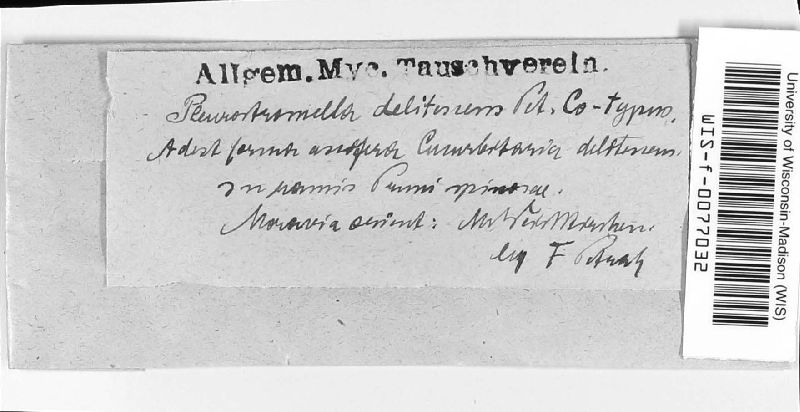 Allgem. Myc. Tauschverein.
Pleurostromella delitescens Pet. Co-typus.
Adest forma ascifera Cucurbitaria delitescens.
In ramis Pruni spinosae.
Moravia orient: Mr
leg F Petrak
University of Wisconsin-Madison (WIS)
WIS-f-0077032